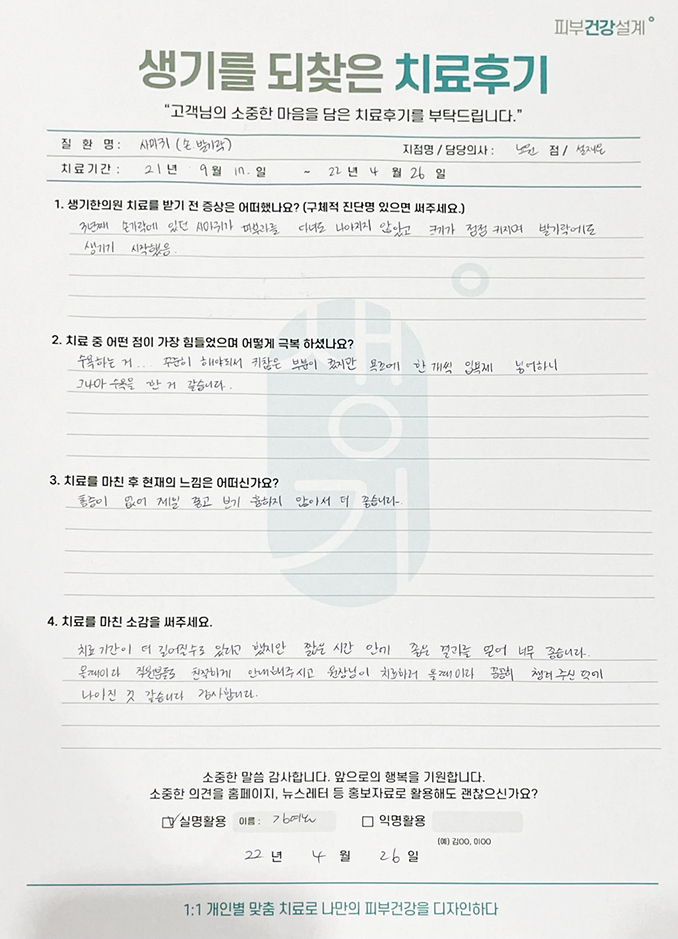 피부건강설계
생기를 되찾은 치료후기
"고객님의 소중한 마음을 담은 치료후기를 부탁드립니다."
질 환 명 : 사마귀 (손, 발가락) 지점명 / 담당의사 : 노원 점 /
치료기간 : 21 년 9 월 17. 일 ~ 22 년 4 월 26 일
1. 생기한의원 치료를 받기 전 증상은 어떠했나요? (구체적 진단명 있으면 써주세요.)
3년째 손가락에 있던 사마귀가 피부과를 다녀도 나아지지 않았고 크기가 점점 커지며 발가락에도
생기기 시작했음.
2. 치료 중 어떤 점이 가장 힘들었으며 어떻게 극복 하셨나요?
수욕하는 거... 꾸준히 해야되서 귀찮은 부분이 컸지만 욕조에 한 개씩 입욕제 넣어하니
그나마 수욕을 한 거 같습니다.
생기
3. 치료를 마친 후 현재의 느낌은 어떠신가요?
통증이 없어 제일 좋고 보기 흉하지 않아서 더 좋습니다.
4. 치료를 마친 소감을 써주세요.
치료 기간이 더 길어질수도 있다고 했지만 짧은 시간 안에 좋은 결과를 얻어 너무 좋습니다.
올때마다 직원분들도 친절하게 안내해주시고 원장님이 치료하러 올때마다 꼼꼼히 챙겨 주신 덕에
나아진 것 같습니다 감사합니다.
소중한 말씀 감사합니다. 앞으로의 행복을 기원합니다.
소중한 의견을 홈페이지, 뉴스레터 등 홍보자료로 활용해도 괜찮으신가요?
실명활용 이름 : 익명활용
(예) 김OO, 이OO
22 년 4 월 26 일
1:1 개인별 맞춤 치료로 나만의 피부건강을 디자인하다